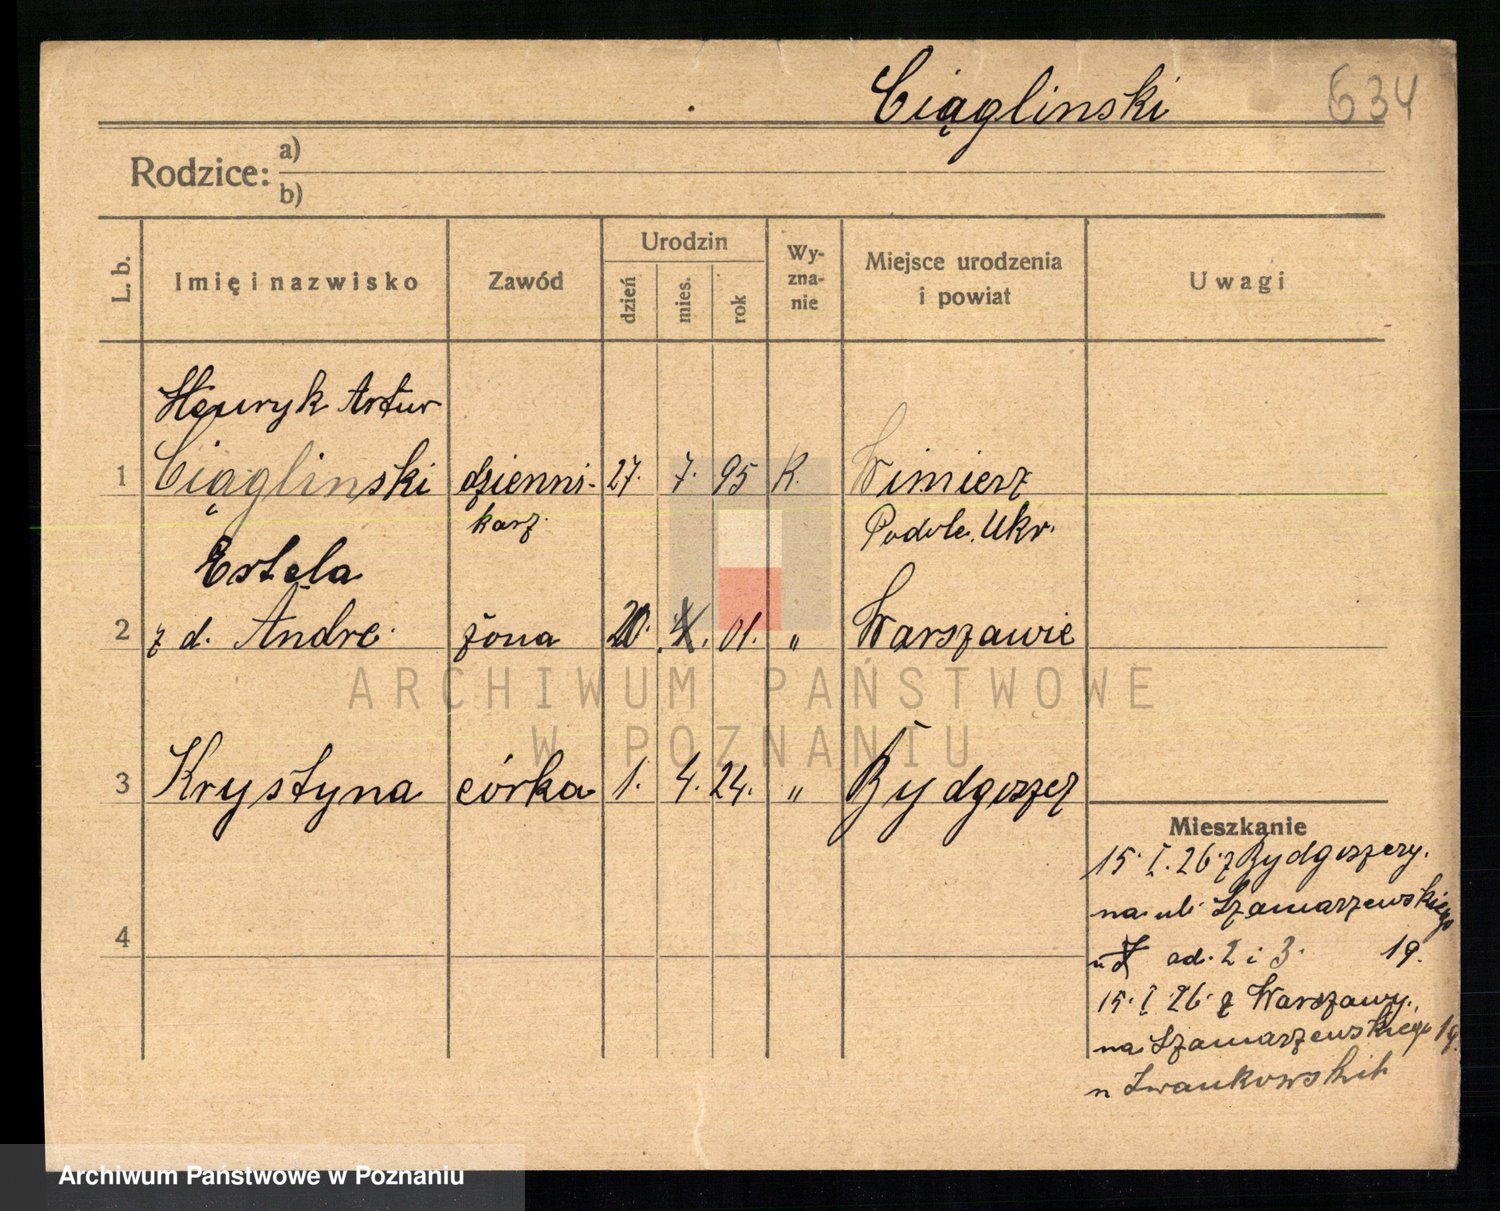 Ciąglinski 634
Rodzice: a)
b)
L. b.
Imię i nazwisko
Zawód
Urodzin
dzień
mies.
rok
Wy-
zna-
nie
Miejsce urodzenia
i powiat
Uwagi
Henryk Artur
1 Ciąglinski dzienni- 27. 7. 95 R. Winnierz
karz. Podole. Ukr.
Estela
2 z d. Andre żona 20. 01. " Warszawie
3 Krystyna córka 1. 4. 24. " Bydgoszcz
Mieszkanie
15. I. 26. z Bydgoszczy.
na ul. Szamarzewskiego
ad. 2 i 3. 19.
15. I 26. z Warszawy.
na Szamarzewskiego 19.
u Iwankowskich
4
ARCHIWUM PAŃSTWOWE
W POZNANIU
Archiwum Państwowe w Poznaniu